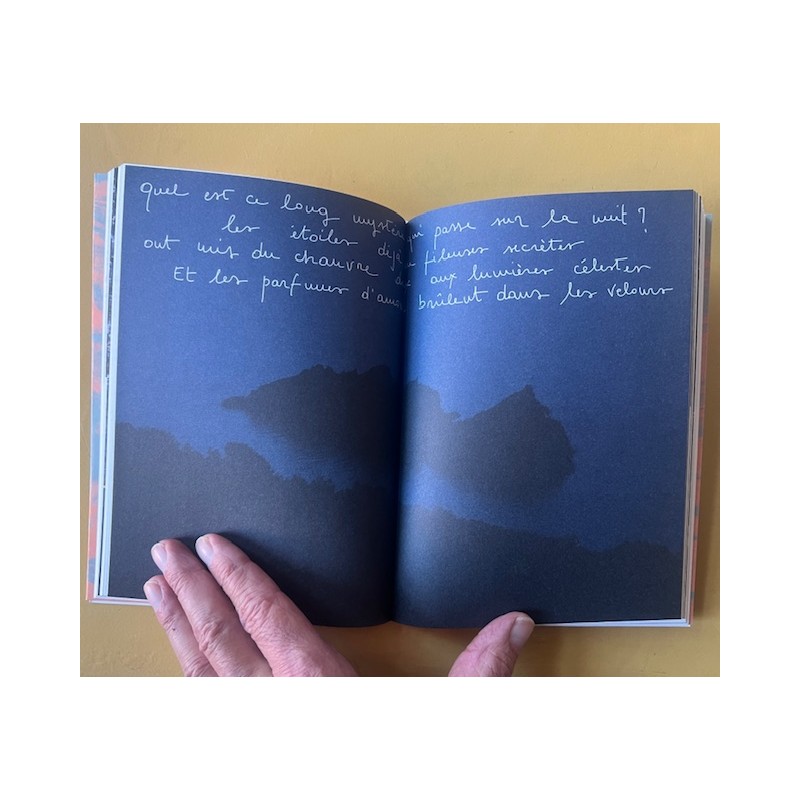 Quel est ce long mystère qui passe sur la nuit ?
les étoiles déjà fileuses secrètes
ont mis du chanvre aux lumières célestes
Et les parfums brûlent dans les velours